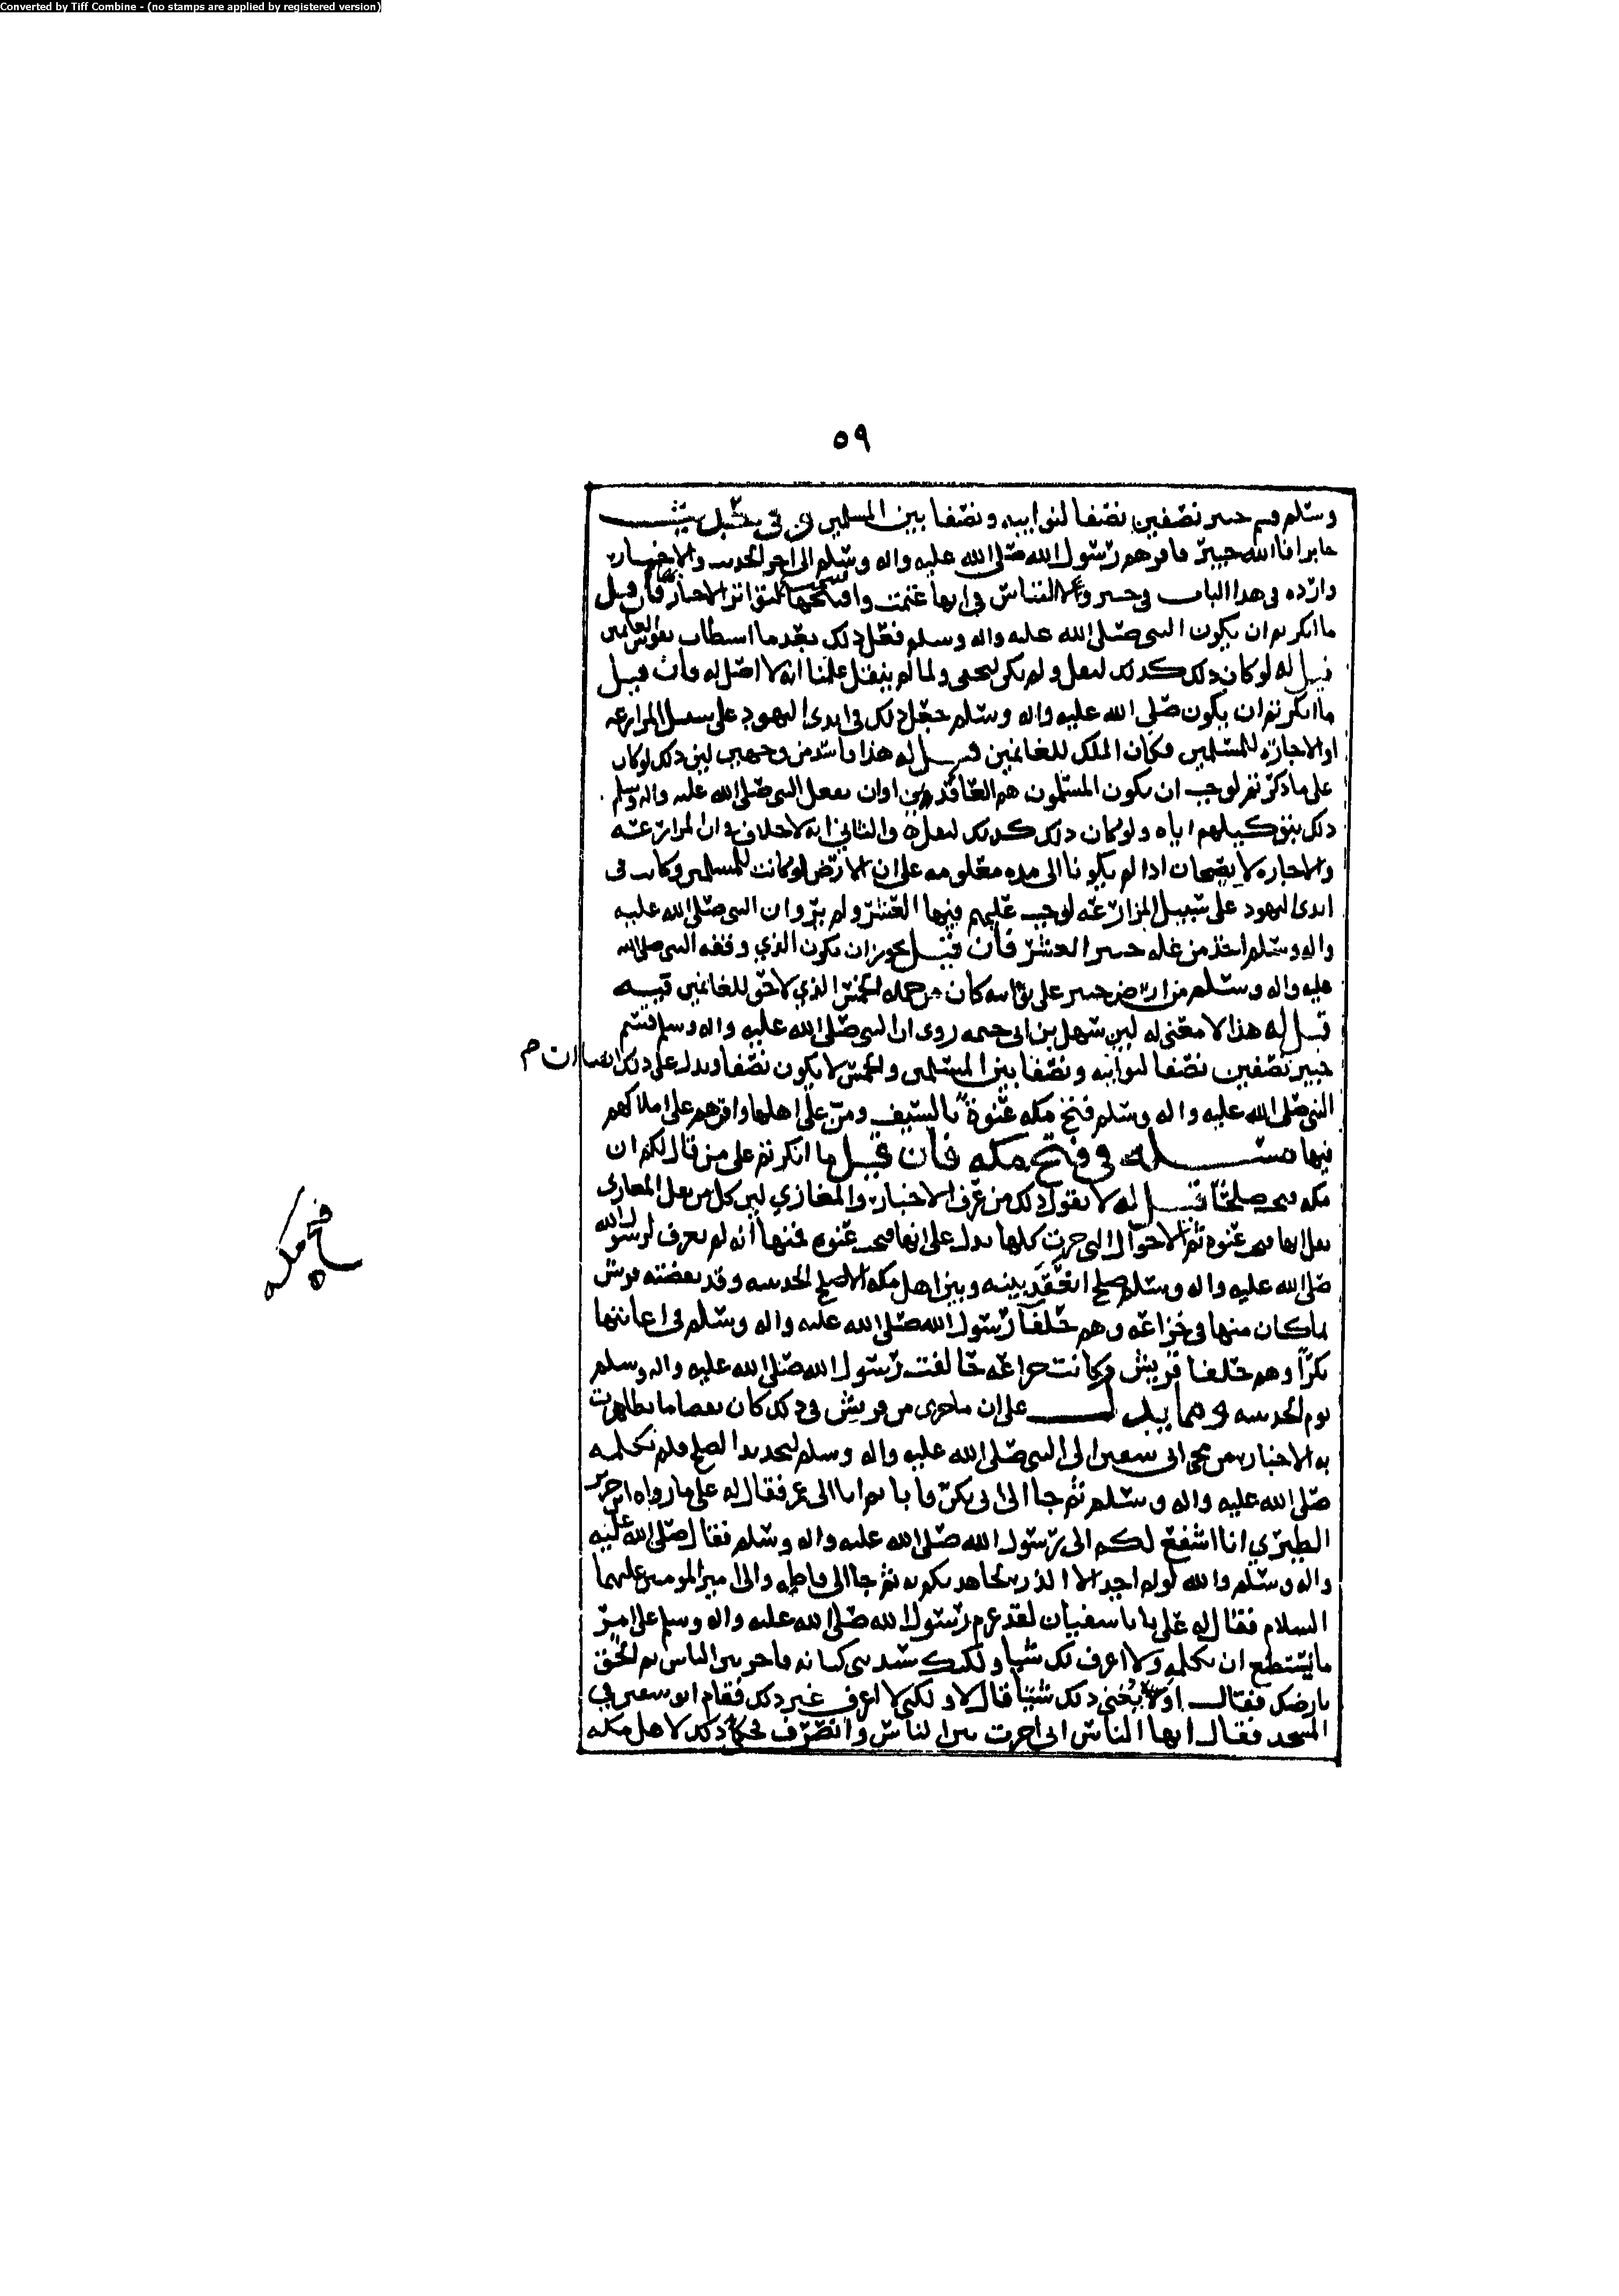 Converted by Tiff Combine - (no stamps are applied by registered version)
٥٩
وسلم قسم خيبر نصفين نصفا لنوائبه ونصفا بين المسلمين
جابر افا الله خيبر فاقرهم رسول الله صلى الله عليه واله وسلم الى اخر الحديث والاخبار
وارده في هذا الباب في خيبر ولا التباس في انها غنمت وافتتحها لتواتر الاخبار بها فان قيل
ما انكرتم ان يكون النبي صلى الله عليه واله وسلم فعل ذلك بعد ما استطاب نفوس الغانمين
قيل له لو كان ذلك كذلك لنقل ولم يكن ليخفى ولما لم ينقل علمنا انه لا اصل له فان قيل
ما انكرتم ان يكون صلى الله عليه واله وسلم جعل ذلك في ايدي اليهود على سبيل المزارعه
او الاجاره للمسلمين فكان الملك للغانمين قيل له هذا فاسد من وجهين لين ذلك لو كان
على ما ذكرتم لوجب ان يكون المسلمون هم العاقدين او ان يفعل النبي صلى الله عليه واله وسلم
ذلك بتوكيلهم اياه ولو كان ذلك كذلك لنقل والثاني انه لا خلاف في ان المزارعه
والاجاره لا يصحان اذا لم يكونا الى مده معلومه على ان الارض لو كانت للمسلمين وكانت في
ايدي اليهود على سبيل المزارعه لوجب عليهم فيها العشر ولم يرو ان النبي صلى الله عليه
واله وسلم اخذ من غله خيبر العشر فان قيل يجوز ان يكون الذي وقفه النبي صلى الله
عليه واله وسلم من ارض خيبر على نوائبه كان من جمله الخمس الذي لا حق للغانمين فيه
قيل له هذا لا معنى له لين سهل بن ابي حثمه روى ان النبي صلى الله عليه واله وسلم قسم
خيبر نصفين نصفا لنوائبه ونصفا بين المسلمين والخمس لا يكون نصفا ويدل على ذلك ايضا ان م
النبي صلى الله عليه واله وسلم فتح مكه عنوة بالسيف ومن على اهلها واقرهم على املاكهم
فيها مسئله في فتح مكه فان قيل ما انكرتم على من قال لكم ان
مكه فتحت صلحا قيل له لا يقول ذلك من عرف الاخبار والمغازي لين كل من نقل المغازي
نقل انها فتحت عنوه ثم الاحوال التي جرت كلها تدل على انها فتحت عنوه فمنها انه لم يعرف لرسول الله
صلى الله عليه واله وسلم صلح انعقد بينه وبين اهل مكه الا صلح الحديبيه وقد نقضته قريش
لما كان منها في خزاعه وهم حلفا رسول الله صلى الله عليه واله وسلم في اعانتها
بكرا وهم حلفا قريش وكانت خزاعه حالفت رسول الله صلى الله عليه واله وسلم
يوم الحديبيه ومما يدل على ان ما جرى من قريش في ذلك كان نقضا ما تظاهرت
به الاخبار من مجي ابي سفين الى النبي صلى الله عليه واله وسلم لتجديد الصلح فلم يكلمه
صلى الله عليه واله وسلم ثم جا الى ابي بكر فابا ثم اتا الى عمر فقال له على ما رواه ابن جرير
الطبري انا اشفع لكم الى رسول الله صلى الله عليه واله وسلم فقال صلى الله عليه
واله وسلم والله لو لم اجد الا الذر لجاهدتكم به ثم جا الى فاطمه والى امير المومنين عليهما
السلام فقال له علي يا با سفيان لقد عزم رسول الله صلى الله عليه واله وسلم على امر
ما نستطيع ان نكلمه ولا اعرف لك شيا ولكنك سيد بني كنانه فاجر بين الناس ثم الحق
بارضك فقال اولا يغني ذلك شيئا قال لا ولكني لا اعرف غير ذلك فقام ابو سفين في
المسجد فقال ايها الناس اني اجرت بين الناس وانصرف فحكى ذلك لاهل مكه
فتح مكه